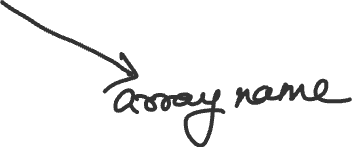 array name